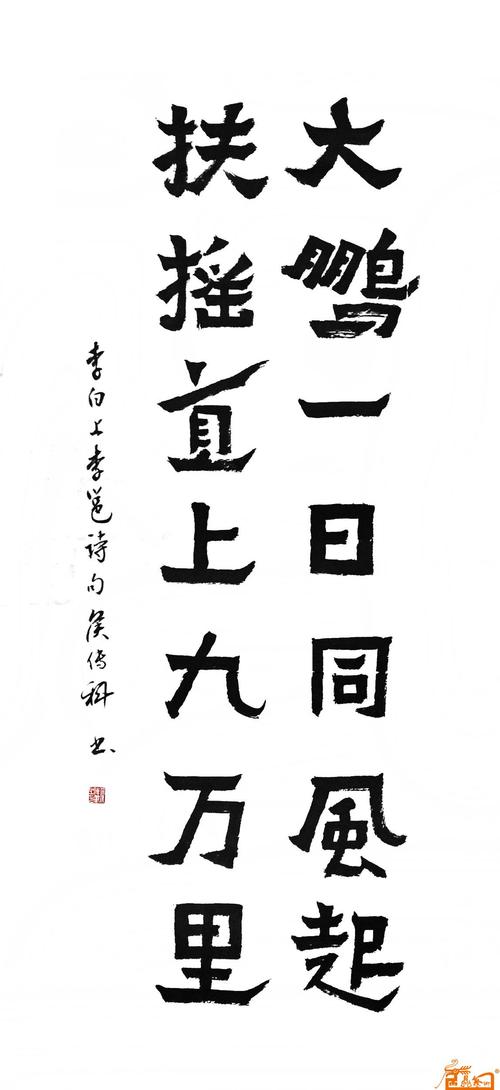 大鹏一日同風起
扶摇直上九万里
李白上李邕詩句 侯传科 书